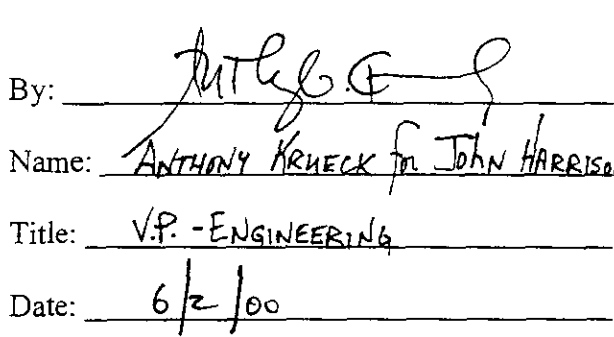 By:
Name: ANTHONY KRUECK for JOHN HARRISO
Title: V.P. - ENGINEERING
Date: 6/2/00